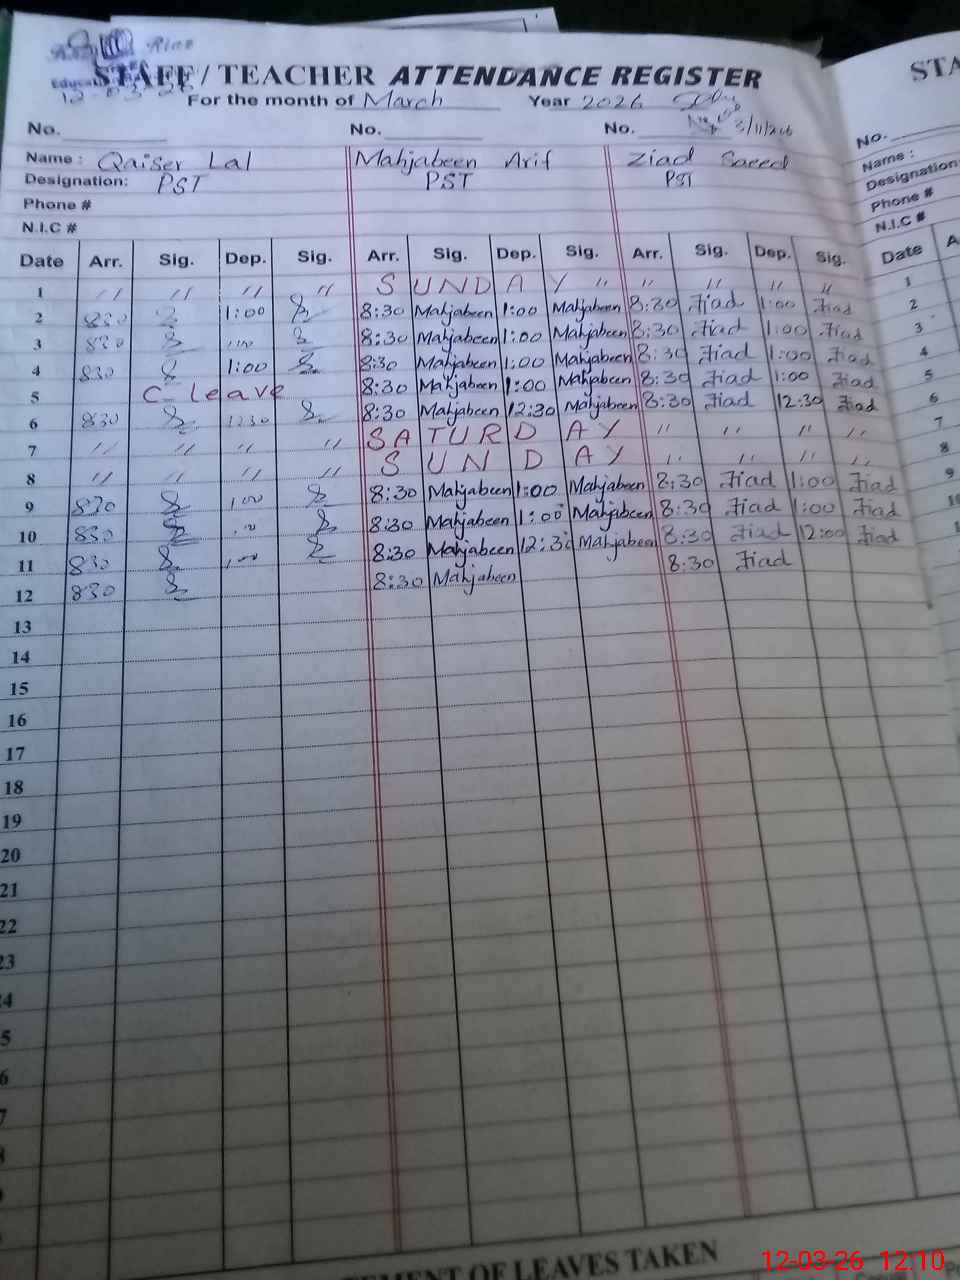 Riaz
12-03-26
STAFF / TEACHER ATTENDANCE REGISTER
For the month of March Year 2026
3/11/26
No. No. No.
Name : Qaiser Lal Mahjabeen Arif Ziad Saeed
Designation: PST PST PST
Phone #
N.I.C #
Date Arr. Sig. Dep. Sig. Arr. Sig. Dep. Sig. Arr. Sig. Dep. Sig.
1 " " " " SUNDAY " " " " "
2 830 1:00 8:30 Mahjabeen 1:00 Mahjabeen 8:30 Ziad 1:00 Ziad
3 830 1:00 8:30 Mahjabeen 1:00 Mahjabeen 8:30 Ziad 1:00 Ziad
4 830 1:00 8:30 Mahjabeen 1:00 Mahjabeen 8:30 Ziad 1:00 Ziad
5 C-leave 8:30 Mahjabeen 1:00 Mahjabeen 8:30 Ziad 1:00 Ziad
6 830 1230 8:30 Mahjabeen 12:30 Mahjabeen 8:30 Ziad 12:30 Ziad
7 " " " " SATURDAY " " " "
8 " " " " SUNDAY " " " "
9 830 1:00 8:30 Mahjabeen 1:00 Mahjabeen 8:30 Ziad 1:00 Ziad
10 830 8:30 Mahjabeen 1:00 Mahjabeen 8:30 Ziad 1:00 Ziad
11 830 1:00 8:30 Mahjabeen 12:30 Mahjabeen 8:30 Ziad 12:00 Ziad
12 830 8:30 Mahjabeen 8:30 Ziad
13
14
15
16
17
18
19
20
21
22
23
24
5
6
7
8
9
STA
No.
Name :
Designation
N.I.C #
Date A
1
2
3
4
5
6
7
8
9
10
EMENT OF LEAVES TAKEN
12-03-26 12:10